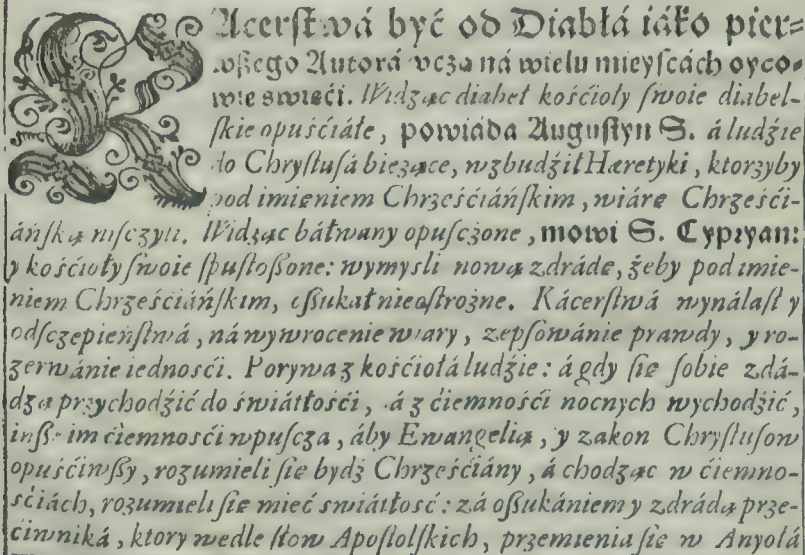 KAcerſtwá być od Diabłá iáko pier⸗
wßego Autorá vczą ná wielu mieyſcách oyco⸗
wie święći. Widząc diabeł kośćioły ſwoie diabel-
ſkie opuśćiáłe, powiáda Auguſtyn S. á ludźie
do Chryſtuſá bieżące, wzbudźił Hæretyki, ktorzyby
pod imieniem Chrześćiáńſkim, wiárę Chrześći-
áńſką niſczyli. Widząc báłwany opuſczone, mowi S. Cypryan:
y kośćioły ſwoie ſpuſtoßone: wymyśli nową zdrádę, żeby pod imie-
niem Chrześćiáńſkim, oßukał nieoſtrożne. Kácerſtwá wynálaſł y
odſczepieńſtwá, ná wywrocenie wiary, zepſowánie prawdy, y ro-
zerwánie iednośći. Porywa z kośćiołá ludźie: á gdy ſię ſobie zdá-
dzą przychodźić do świátłośći, á z ćiemnośći nocnych wychodźić,
inße im ćiemnośći wpuſcza, áby Ewangelią, y zakon Chryſtuſow
opuśćiwßy, rozumieli ſię bydź Chrześćiány, á chodząc w ćiemno-
śćiách, rozumieli ſię mieć świátłość: zá oßukániem y zdrádą prze-
ćiwniká, ktory wedle ſłow Apoſtolſkich, przemienia ſię w Anyołá